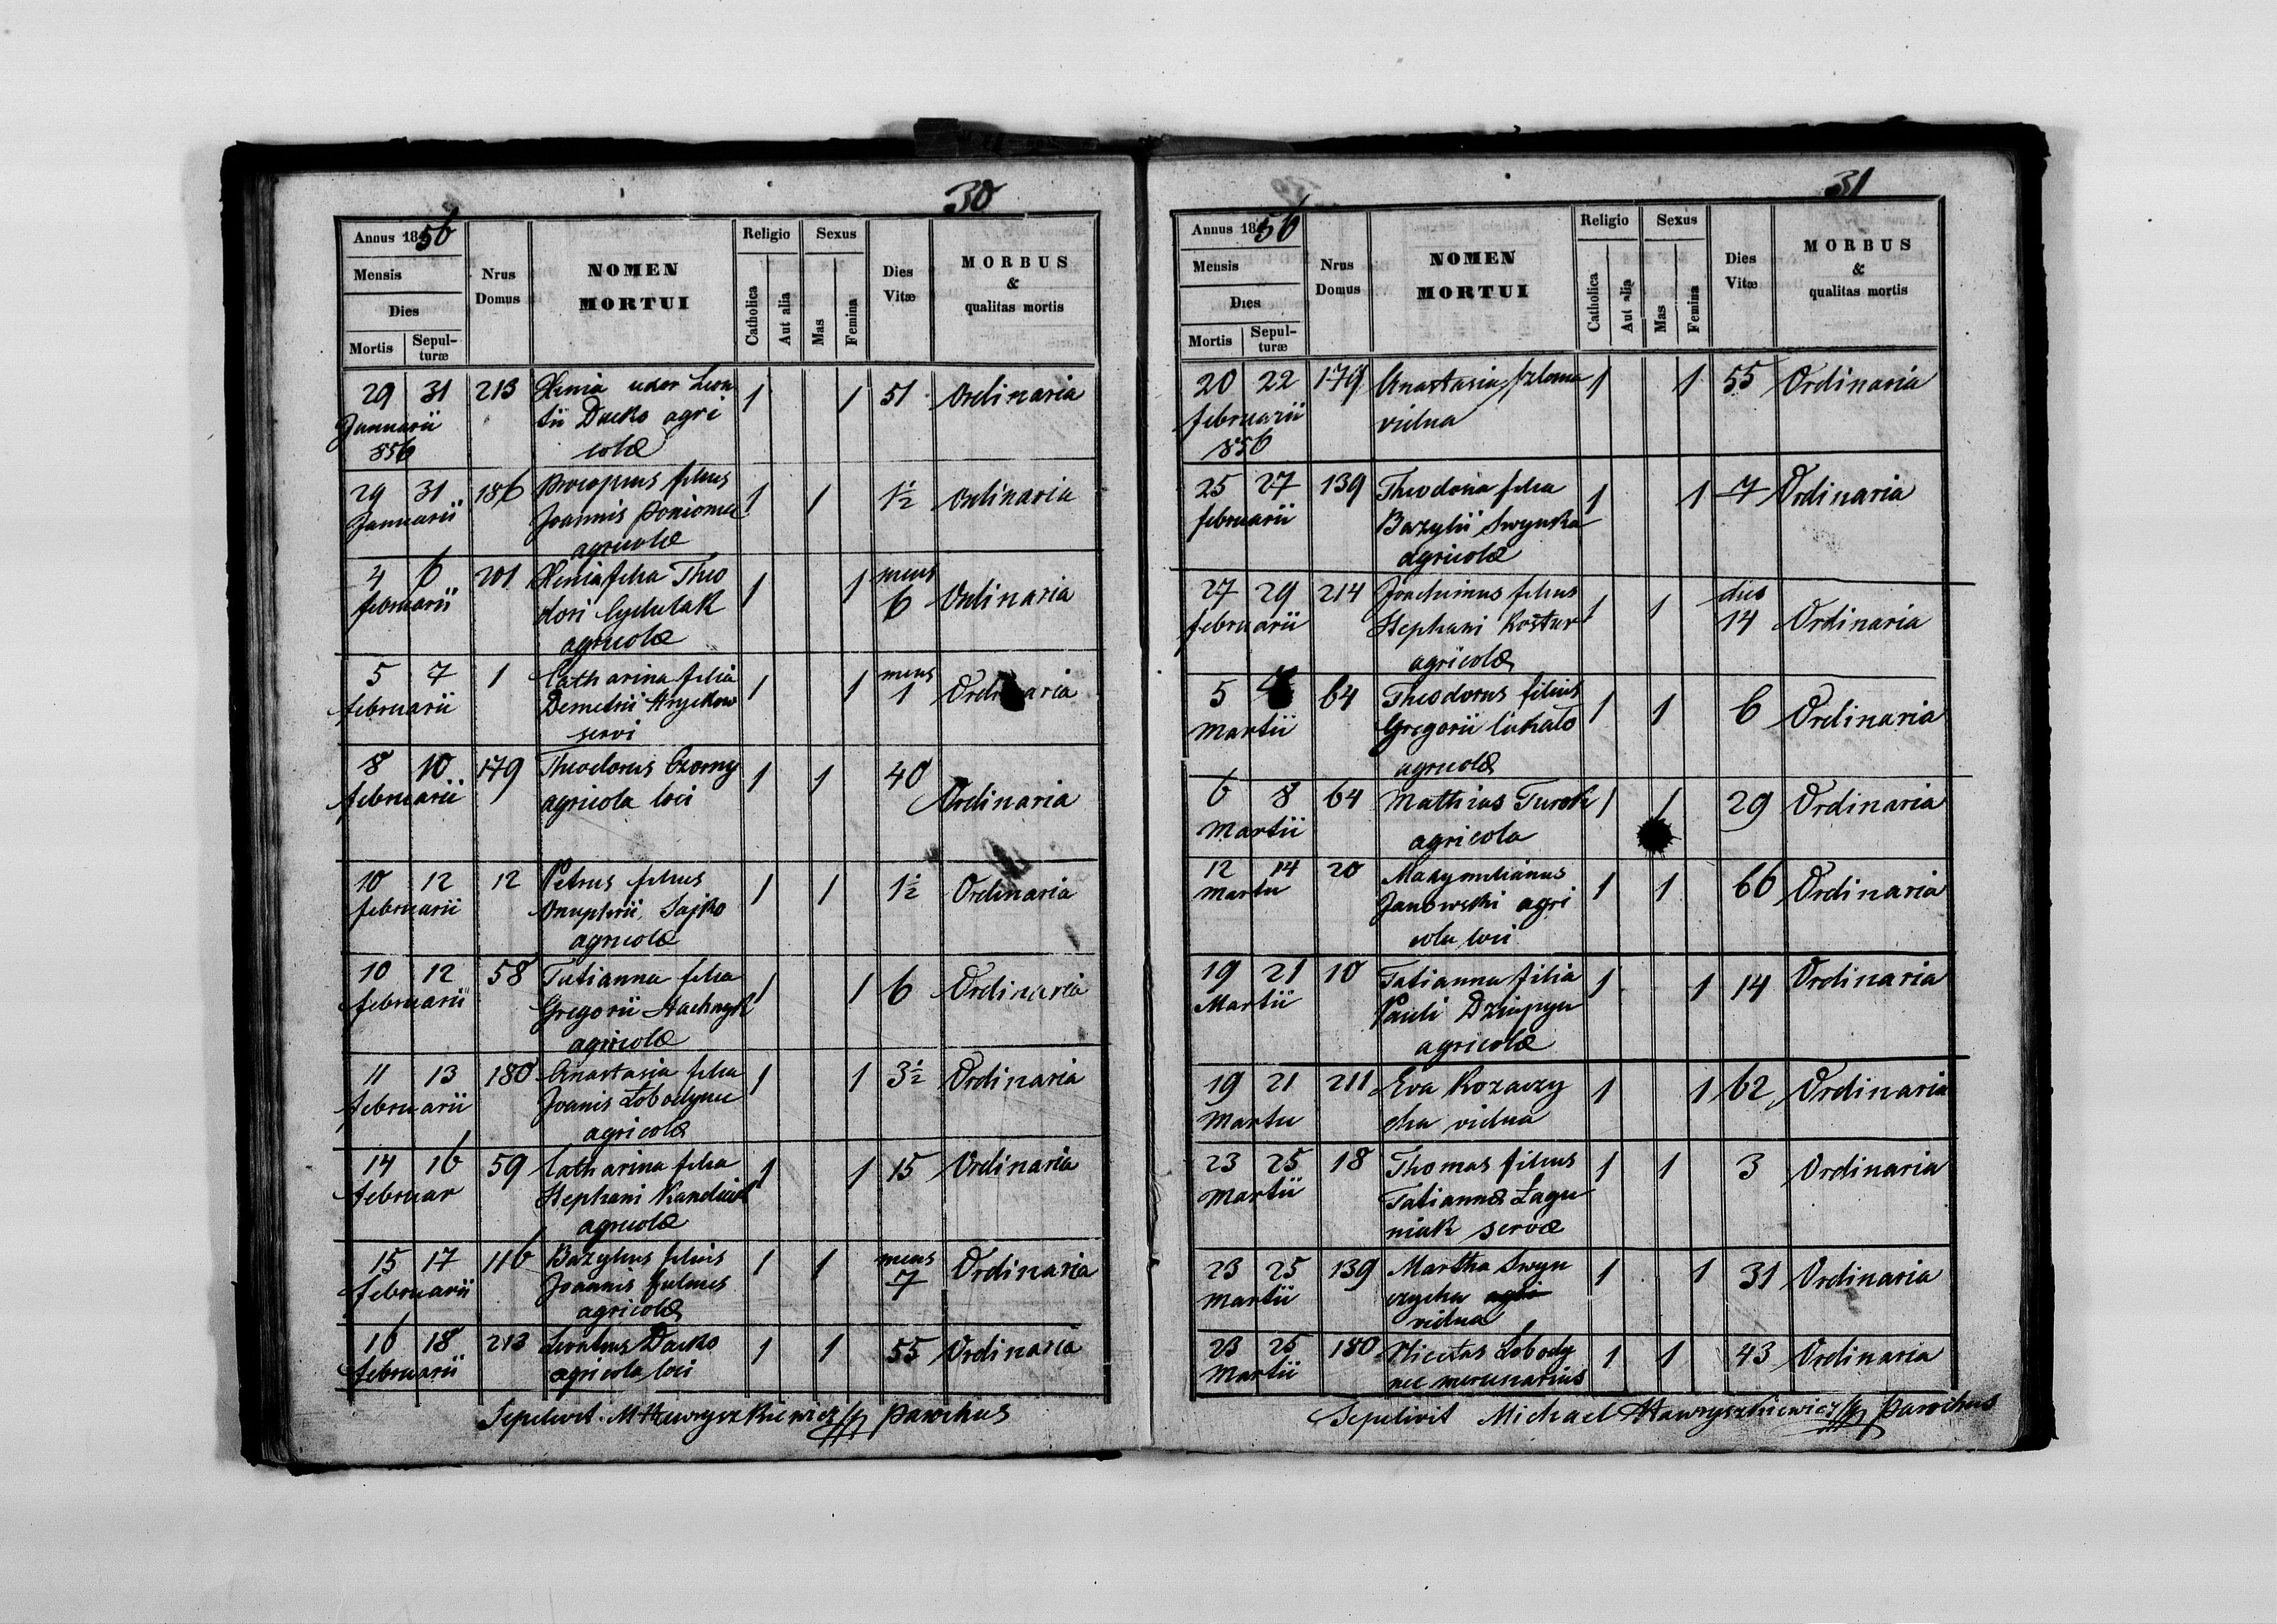 30
Annus 1856
Mensis
Dies
Mortis
Sepul-
turæ
Nrus
Domus
NOMEN
MORTUI
Religio
Catholica
Aut alia
Sexus
Mas
Femina
Dies
Vitæ
MORBUS
&
qualitas mortis
29 31 213 Xenia uxor Leon 1 1 51 Ordinaria
Januarii tii Dacko agri
856 colæ
29 31 186 Procopius filius 1 1 1½ Ordinaria
Januarii Joannis
agricolæ
4 6 201 Xenia filia Theo 1 1 mens 6 Ordinaria
februarii dori Cydulak
agricolæ
5 7 1 Catharina filia 1 1 mens 1 Ordinaria
februarii Demetrii Hryckow
servi
8 10 179 Theodorus Czorny 1 1 40 Ordinaria
februarii agricola loci
10 12 12 Petrus filius 1 1 1½ Ordinaria
februarii Onuphrii Sajko
agricolæ
10 12 58 Tatianna filia 1 1 6 Ordinaria
februarii Gregorii Stachnyk
agricolæ
11 13 180 Anastasia filia 1 1 3½ Ordinaria
februarii Joanis Lobodynec
agricolæ
14 16 59 Catharina filia 1 1 15 Ordinaria
februar Stephani Kandiuk
agricolæ
15 17 116 Bazylius filius 1 1 mens 7 Ordinaria
februarii Joannis
agricolæ
16 18 213 Leontius Dacko 1 1 55 Ordinaria
februarii agricola loci
Sepelivit M Hawryszkiewicz parochus
31
Annus 1856
Mensis
Dies
Mortis
Sepul-
turæ
Nrus
Domus
NOMEN
MORTUI
Religio
Catholica
Aut alia
Sexus
Mas
Femina
Dies
Vitæ
MORBUS
&
qualitas mortis
20 22 179 Anastasia 1 1 55 Ordinaria
februarii vidua
856
25 27 139 Theodosia filia 1 1 7 Ordinaria
februarii Bazylii Swynka
agricolæ
27 29 214 Joachimus filius 1 1 dies 14 Ordinaria
februarii Stephani Kostur
agricolæ
5 64 Theodorus filius 1 1 6 Ordinaria
Martii Gregorii
agricolæ
6 8 64 Mathias Turok 1 1 29 Ordinaria
Martii agricola
12 14 20 Maxymilianus 1 1 66 Ordinaria
Martii Janowski agri
cola loci
19 21 10 Tatianna filia 1 1 14 Ordinaria
Martii Pauli
agricolæ
19 21 211 Eva Kozaczy 1 1 62 Ordinaria
Martii cha vidua
23 25 18 Thomas filius 1 1 3 Ordinaria
Martii Tatiannæ Lagu
niak servæ
23 25 139 Martha Swyn 1 1 31 Ordinaria
Martii czycha agri
vidua
23 25 180 Nicetas Lobody 1 1 43 Ordinaria
Martii nec mercenarius
Sepelivit Michael Hawryszkiewicz parochus